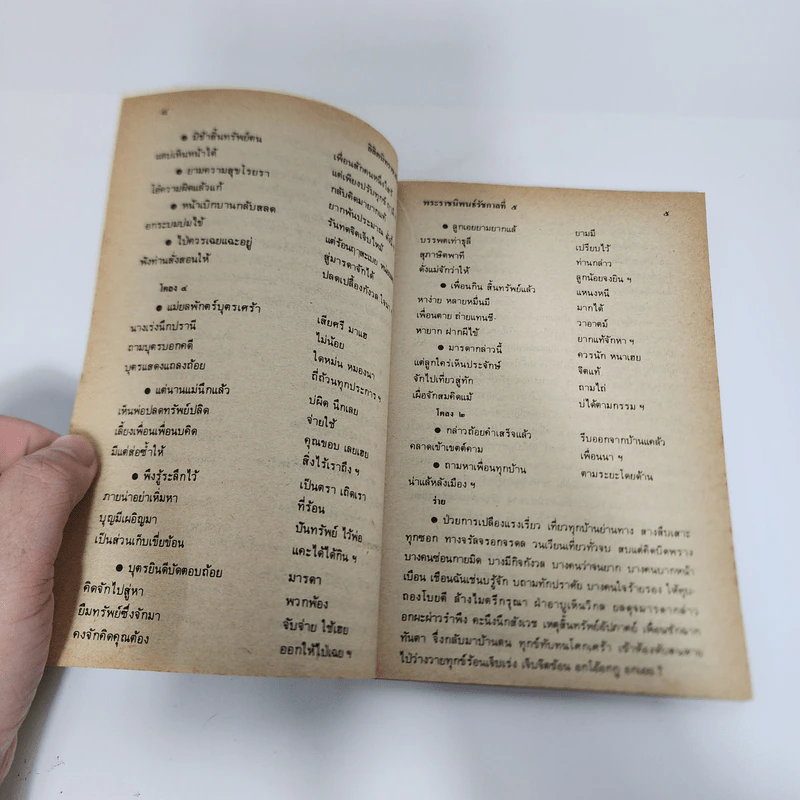 ๔
● มิช้าสิ้นทรัพย์ตน เพื่อนสักคนหนึ่งใคร่
● ยามความสุขโรยรา แต่เพียงปรับทุกข์
ได้ความผิดแล้วแก้ กลับคิดมายากแท้
● หน้าเบิกบานกลับสลด ยากพ้นประมาณ
อกระบมบ่มไข้ รันทดจิตเจ็บไหม้
● ไป่ควรเฉยแฉะอยู่ แต่ร้อนฤๅสะเบย
ฟังท่านสั่งสอนให้ สู่มารดาจักได้
ปลดเปลื้องกังวล
โคลง ๔
● แม่ยลพักตร์บุตรเศร้า เสียศรี มาแฮ
นางเร่งนึกปรานี ไม่น้อย
ถามบุตรบอกคดี ใดหม่น หมองนา
บุตรแสดงแถลงถ้อย ถี่ถ้วนทุกประการ ฯ
● แต่นานแม่นึกแล้ว ปผิด นึกเลย
เห็นพ่อปลดทรัพย์ปลิด จ่ายใช้
เลี้ยงเพื่อนเพื่อนบคิด คุณขอบ เลยเฮย
มีแต่ส่อซ้ำให้ สิ่งไร้เราถึง ฯ
● พึงรู้ระลึกไว้ เป็นตรา เถิดเรา
ภายน่าอย่าเหิ่มหา ที่ร้อน
บุญมีเผอิญมา ปันทรัพย์ ไว้พ่อ
เป็นส่วนเก็บเขี่ยข้อน แคะได้ได้กิน ฯ
● บุตรยินดีบัดตอบถ้อย มารดา
คิดจักไปสู่หา พวกพ้อง
ยืมทรัพย์ซึ่งจักมา จับจ่าย ใช้เฮย
คงจักคิดคุณต้อง ออกให้ไปเฉย ฯ
พระราชนิพนธ์รัชกาลที่ ๕ ๕
● ลูกเอยยามยากแล้ ยามมี
บรรพตเท่าธุลี เปรียบไว้
สุภาษิตพาที ท่านกล่าว
ดังแม่จักว่าให้ ลูกน้อยจงยิน ฯ
● เพื่อนกิน สิ้นทรัพย์แล้ว แหนงหนี
หาง่าย หลายหมื่นมี มากได้
เพื่อนตาย ถ่ายแทนชี วาอาตม์
หายาก ฝากผีไข้ ยากแท้จักหา ฯ
● มารดากล่าวนี้ ควรนัก หนาเฮย
แต่ลูกใคร่เห็นประจักษ์ จิตแท้
จักไปเที่ยวสู่ทัก ถามไถ่
เผื่อจักสมคิดแม้ บ่ได้ตามกรรม ฯ
โคลง ๒
● กล่าวถ้อยคำเสร็จแล้ว รีบออกจากบ้านแคล้ว
คลาดเข้าเขตต์คาม เพื่อนนา ฯ
● ถามหาเพื่อนทุกบ้าน ตามระยะโดยด้าน
น่าแล้หลังเมือง ฯ
ร่าย
● ป่วยการเปลืองแรงเรี่ยว เที่ยวทุกบ้านย่านทาง สางสืบเสาะ
ทุกซอก ทางจรัลจรอกจรดล วนเวียนเที่ยวทั่วจบ สบแต่คิดบิดพราง
บางคนซ่อนกายมิด บางมีกิจกังวล บางคนว่าจนยาก บางคนบากหน้า
เบือน เชือนฉันเช่นบรู้จัก บถามทักปราศัย บางคนใจร้ายรอง
ถองโบยตี ล้างไมตรีกรุณา ฝ่าอาบูเห็นวิกล ยลดุจมารดากล่าว
อกผะผ่าวรำพึง คะนึงนึกสังเวช เหตุสิ้นทรัพย์อัปภาคย์
ทันตา จึ่งกลับมาบ้านตน ทุกข์ทับทนโศกเศร้า
ไป่ว่างวายทุกข์ร้อนเจ็บเร่ง เจ็บจิตข้อน